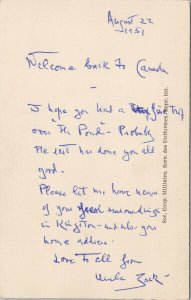 August 22
1951
Welcome back to Canada
I hope you had a fine trip
over "The Pond" - Probably
the rest has done you all
good -
Please let me have news
of your good surroundings
in Kingston - also you
home address.
Love to all from
Uncle Jack
Soc. Coop. Militaire, Serv. des Uniformes, Repr. Int.